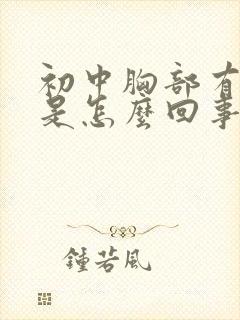 初中胸部有
是怎麼回事
鍾若風